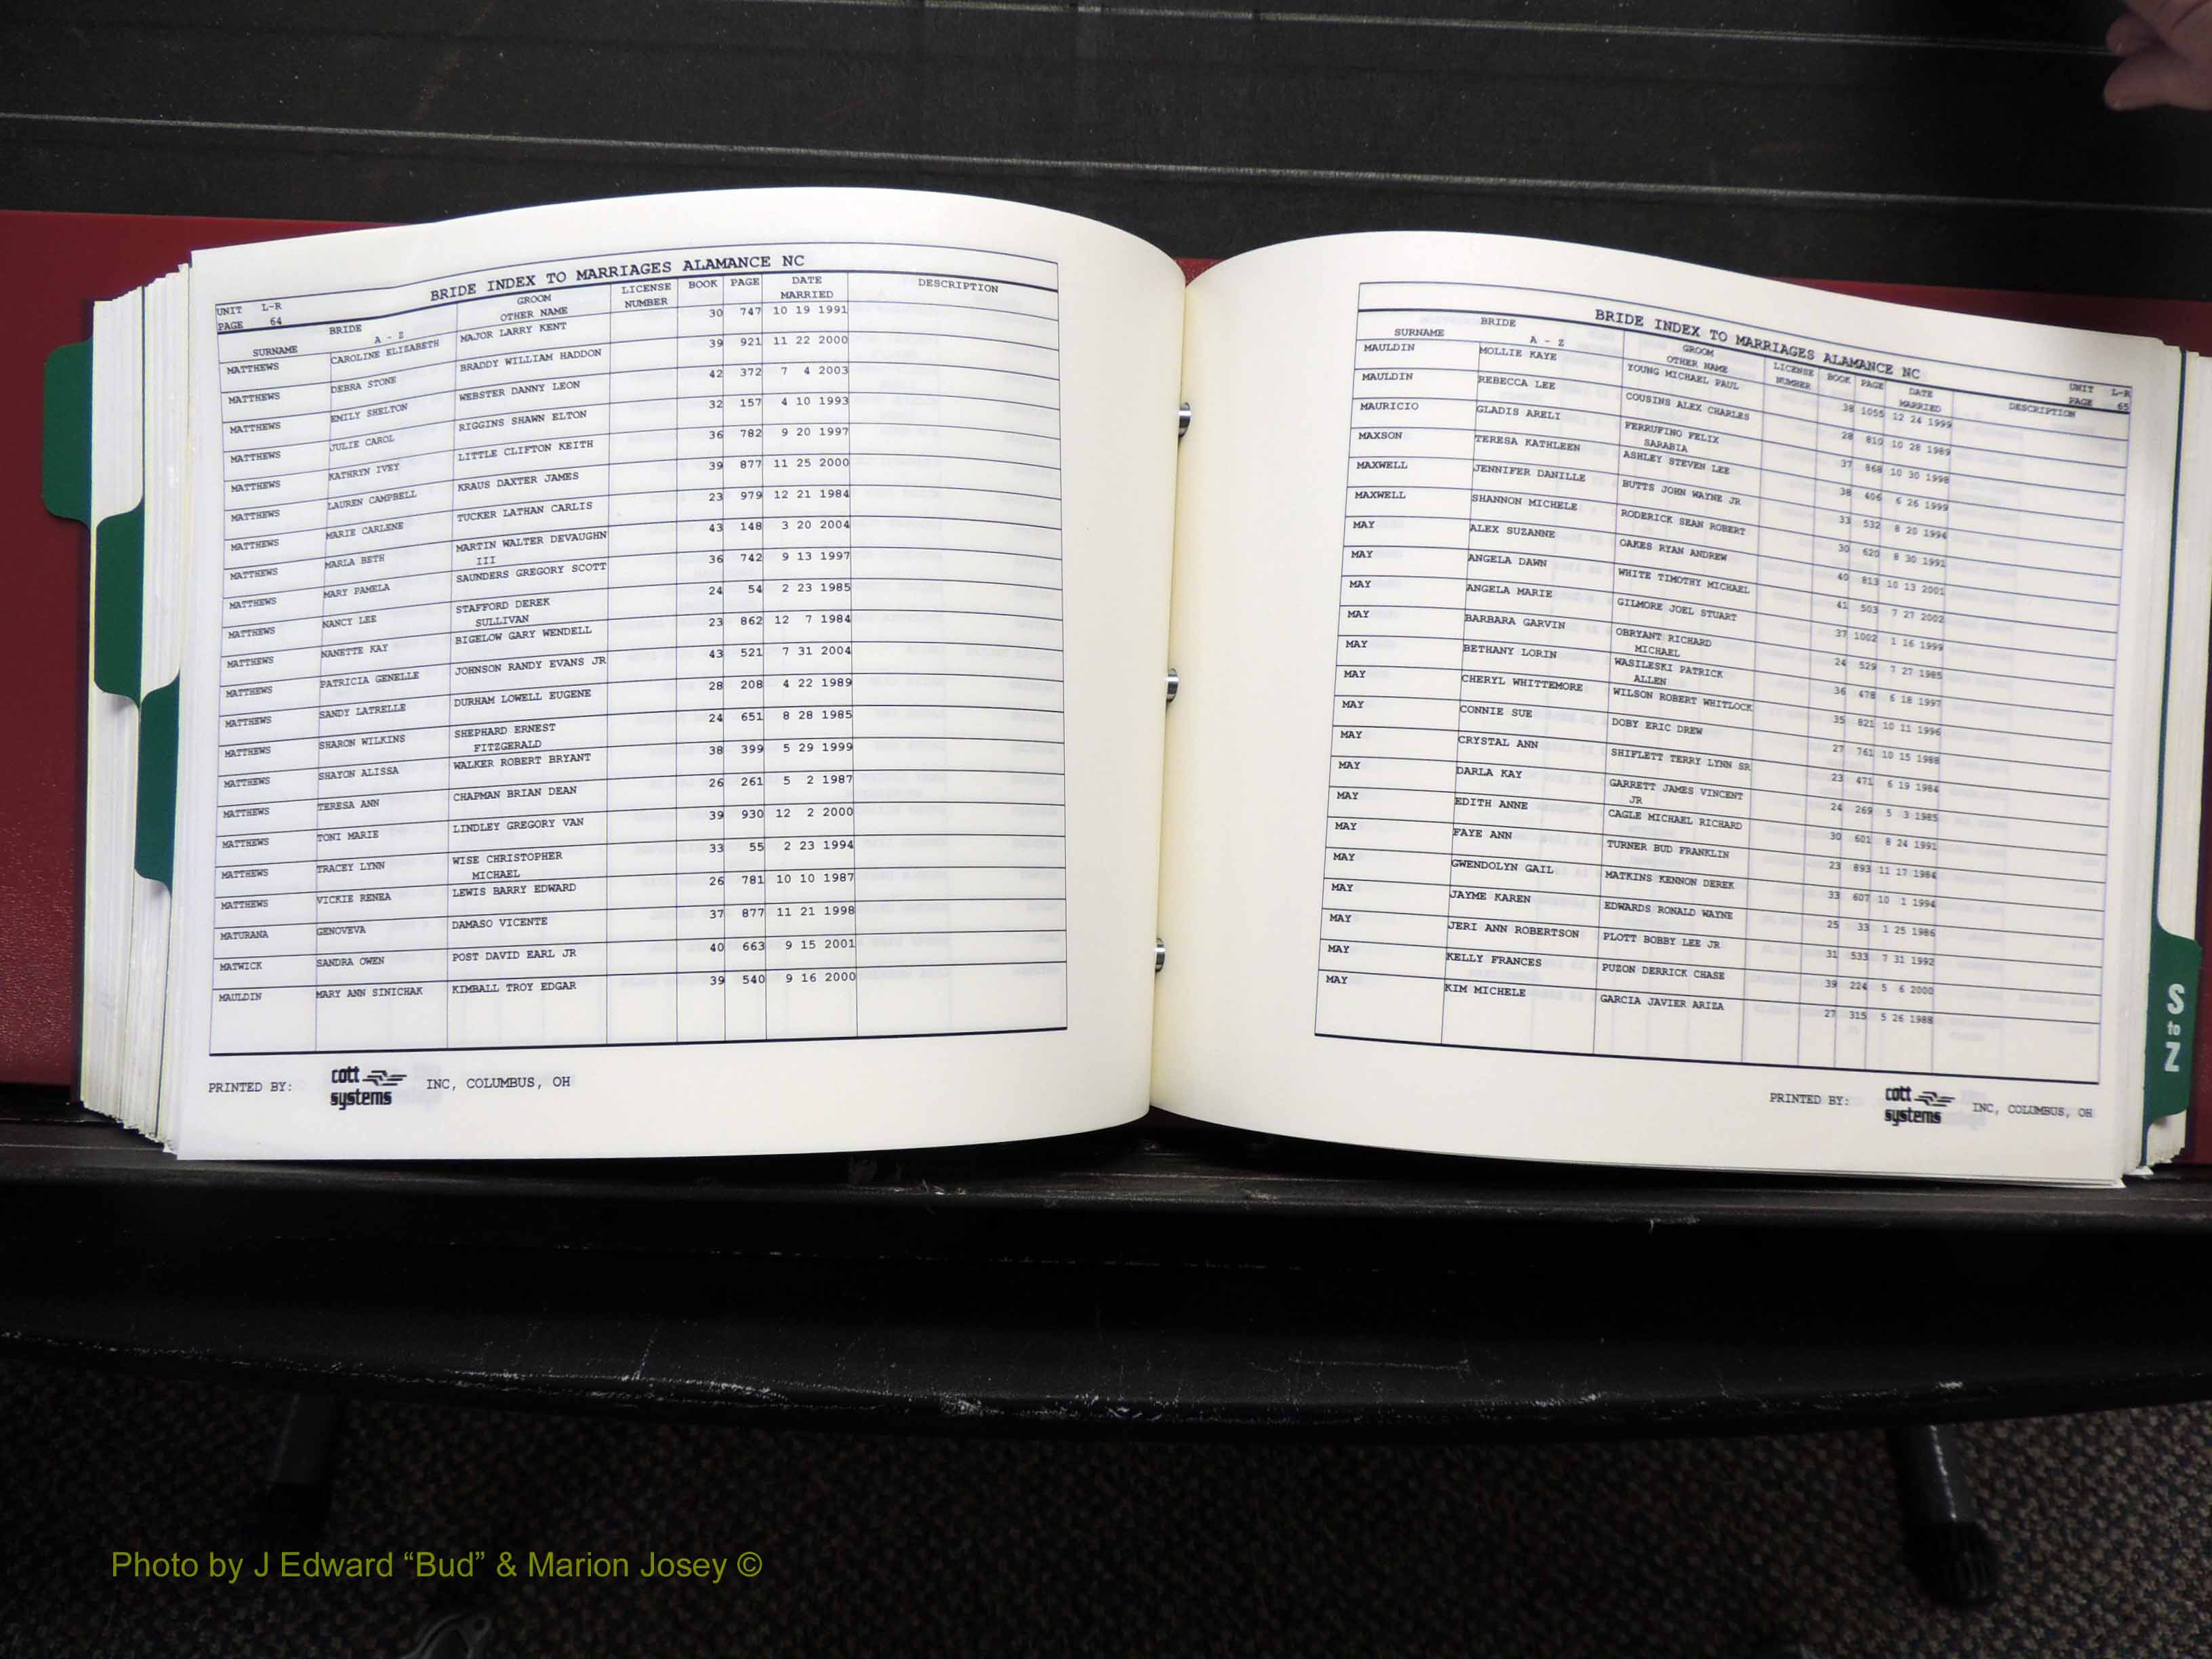 BRIDE INDEX TO MARRIAGES ALAMANCE NC
UNIT L-R
PAGE 64
BRIDE GROOM LICENSE BOOK PAGE DATE DESCRIPTION
SURNAME A - Z OTHER NAME NUMBER MARRIED
MATTHEWS CAROLINE ELIZABETH MAJOR LARRY KENT 30 747 10 19 1991
MATTHEWS DEBRA STONE BRADDY WILLIAM HADDON 39 921 11 22 2000
MATTHEWS EMILY SHELTON WEBSTER DANNY LEON 42 372 7 4 2003
MATTHEWS JULIE CAROL RIGGINS SHAWN ELTON 32 157 4 10 1993
MATTHEWS KATHRYN IVEY LITTLE CLIFTON KEITH 36 782 9 20 1997
MATTHEWS LAUREN CAMPBELL KRAUS DAXTER JAMES 39 877 11 25 2000
MATTHEWS MARIE CARLENE TUCKER LATHAN CARLIS 23 979 12 21 1984
MATTHEWS MARLA BETH MARTIN WALTER DEVAUGHN 43 148 3 20 2004
III
MATTHEWS MARY PAMELA SAUNDERS GREGORY SCOTT 36 742 9 13 1997
MATTHEWS NANCY LEE STAFFORD DEREK 24 54 2 23 1985
SULLIVAN
MATTHEWS NANETTE KAY BIGELOW GARY WENDELL 23 862 12 7 1984
MATTHEWS PATRICIA GENELLE JOHNSON RANDY EVANS JR 43 521 7 31 2004
MATTHEWS SANDY LATRELLE DURHAM LOWELL EUGENE 28 208 4 22 1989
MATTHEWS SHARON WILKINS SHEPHARD ERNEST 24 651 8 28 1985
FITZGERALD
MATTHEWS SHAYON ALISSA WALKER ROBERT BRYANT 38 399 5 29 1999
MATTHEWS TERESA ANN CHAPMAN BRIAN DEAN 26 261 5 2 1987
MATTHEWS TONI MARIE LINDLEY GREGORY VAN 39 930 12 2 2000
MATTHEWS TRACEY LYNN WISE CHRISTOPHER 33 55 2 23 1994
MICHAEL
MATTHEWS VICKIE RENEA LEWIS BARRY EDWARD 26 781 10 10 1987
MATURANA GENOVEVA DAMASO VICENTE 37 877 11 21 1998
MATWICK SANDRA OWEN POST DAVID EARL JR 40 663 9 15 2001
MAULDIN MARY ANN SINICHAK KIMBALL TROY EDGAR 39 540 9 16 2000
PRINTED BY: cott systems INC, COLUMBUS, OH
BRIDE INDEX TO MARRIAGES ALAMANCE NC
UNIT L-R
PAGE 65
BRIDE GROOM LICENSE BOOK PAGE DATE DESCRIPTION
SURNAME A - Z OTHER NAME NUMBER MARRIED
MAULDIN MOLLIE KAYE YOUNG MICHAEL PAUL 38 1055 12 24 1999
MAULDIN REBECCA LEE COUSINS ALEX CHARLES 28 810 10 28 1989
MAURICIO GLADIS ARELI FERRUFINO FELIX 37 868 10 30 1998
SARABIA
MAXSON TERESA KATHLEEN ASHLEY STEVEN LEE 38 406 6 26 1999
MAXWELL JENNIFER DANILLE BUTTS JOHN WAYNE JR 33 532 8 20 1994
MAXWELL SHANNON MICHELE RODERICK SEAN ROBERT 30 620 8 30 1991
MAY ALEX SUZANNE OAKES RYAN ANDREW 40 813 10 13 2001
MAY ANGELA DAWN WHITE TIMOTHY MICHAEL 41 503 7 27 2002
MAY ANGELA MARIE GILMORE JOEL STUART 37 1002 1 16 1999
MAY BARBARA GARVIN OBRYANT RICHARD 24 529 7 27 1985
MICHAEL
MAY BETHANY LORIN WASILESKI PATRICK 36 478 6 18 1997
ALLEN
MAY CHERYL WHITTEMORE WILSON ROBERT WHITLOCK 35 821 10 11 1996
MAY CONNIE SUE DOBY ERIC DREW 27 761 10 15 1988
MAY CRYSTAL ANN SHIFLETT TERRY LYNN SR 23 471 6 19 1984
MAY DARLA KAY GARRETT JAMES VINCENT 24 269 5 3 1985
JR
MAY EDITH ANNE CAGLE MICHAEL RICHARD 30 601 8 24 1991
MAY FAYE ANN TURNER BUD FRANKLIN 23 893 11 17 1984
MAY GWENDOLYN GAIL MATKINS KENNON DEREK 33 607 10 1 1994
MAY JAYME KAREN EDWARDS RONALD WAYNE 25 33 1 25 1986
MAY JERI ANN ROBERTSON PLOTT BOBBY LEE JR 31 533 7 31 1992
MAY KELLY FRANCES PUZON DERRICK CHASE 39 224 5 6 2000
MAY KIM MICHELE GARCIA JAVIER ARIZA 27 315 5 26 1988
PRINTED BY: cott systems INC, COLUMBUS, OH
S
to
Z
Photo by J Edward “Bud” & Marion Josey ©